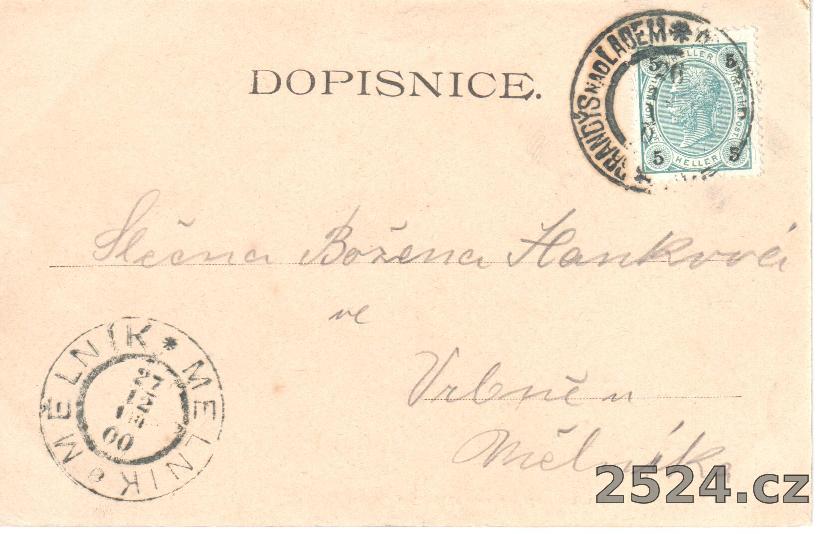 DOPISNICE.
BRANDÝS NAD LABEM
26
5 HELLER 5
5 HELLER 5
Slečna Božena Hanková
ve
Vrbně u
Mělníka
MĚLNÍK * MELNIK
00
2524.cz